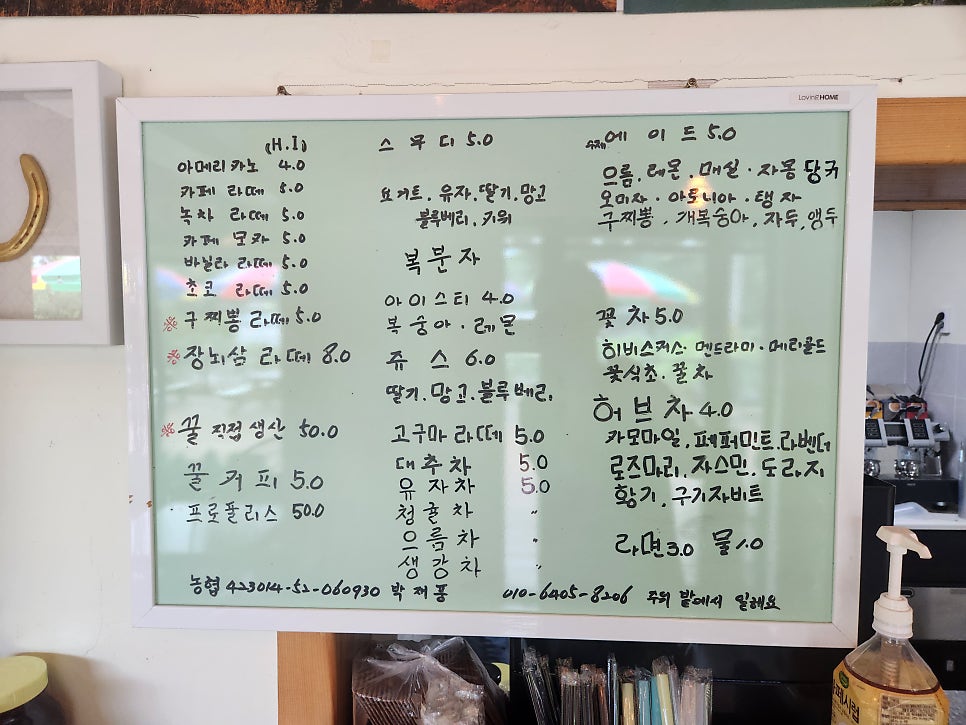 LovingHOME
(H.I)
아메리카노 4.0
카페 라떼 5.0
녹차 라떼 5.0
카페 모카 5.0
바닐라 라떼 5.0
초코 라떼 5.0
※ 구찌뽕 라떼 5.0
※ 장뇌삼 라떼 8.0
※ 꿀 직접 생산 50.0
꿀 커피 5.0
프로폴리스 50.0
스무디 5.0
요거트. 유자. 딸기. 망고
블루베리. 키위
복분자
아이스티 4.0
복숭아 · 레몬
쥬스 6.0
딸기. 망고. 블루베리.
고구마 라떼 5.0
대추차 5.0
유자차 5.0
청귤차 〃
으름차 〃
생강차 〃
수제 에이드 5.0
으름. 레몬. 매실 · 자몽 당귀
오미자 · 아로니아 · 탱자
구찌뽕. 개복숭아. 자두, 앵두
꽃차 5.0
히비스커스. 멘드라미 · 메리골드
꽃식초. 꿀차
허브차 4.0
카모마일. 페퍼민트. 라벤더
로즈마리. 자스민. 도라지
황기. 구기자비트
라면 3.0 물 1.0
농협 423014-52-060930 박재홍 010-6405-8206 주위 밭에서 일해요